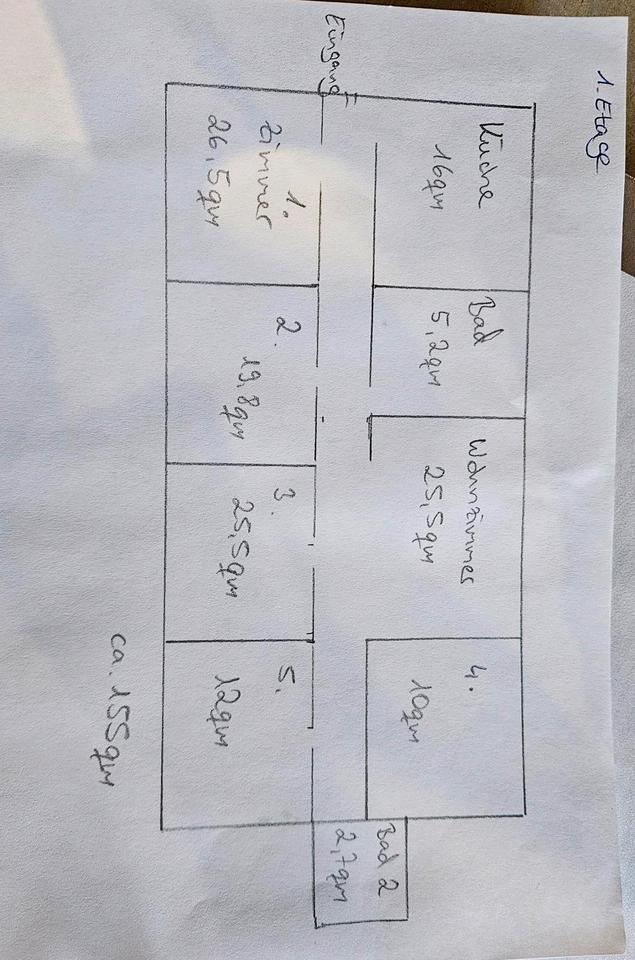 1. Etage
Eingang
Küche
16qm
Bad
5,2qm
Wohnzimmer
25,5qm
4.
10qm
1.
Zimmer
26,5qm
2.
19,8qm
3.
25,5qm
5.
12qm
Bad 2
2,7qm
ca. 155qm